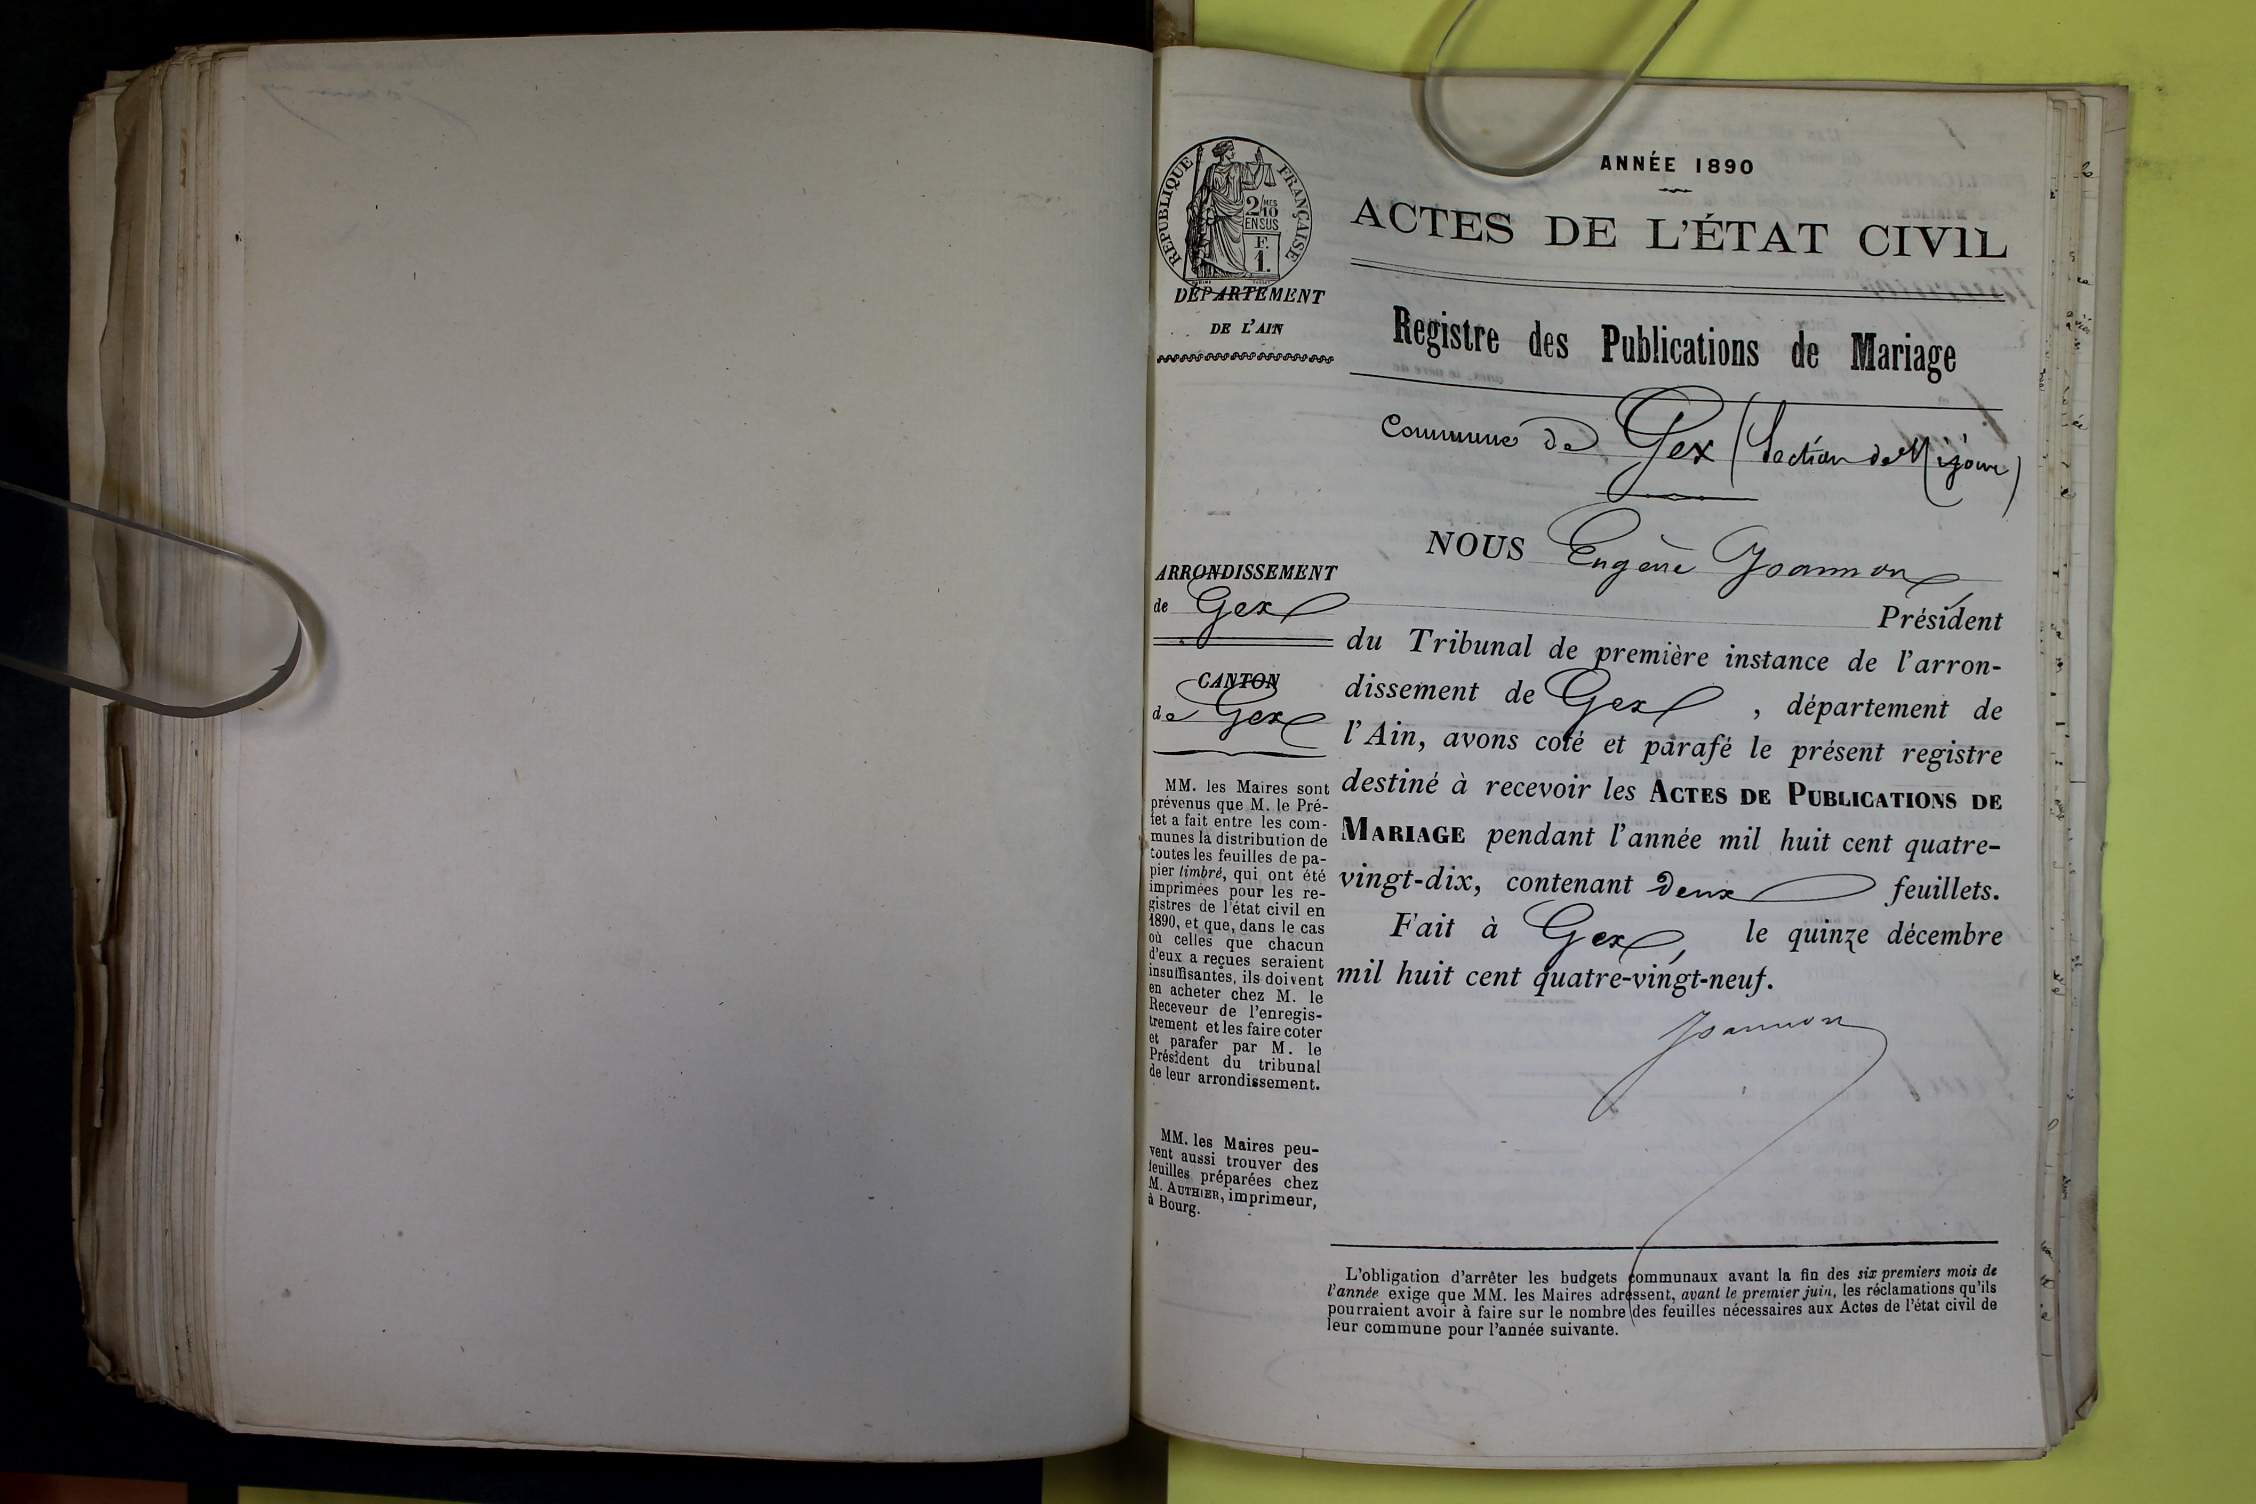 ANNÉE 1890
ACTES DE L'ÉTAT CIVIL
Registre des Publications de Mariage
Commune de Gex (Section de Mijoux)
RÉPUBLIQUE FRANÇAISE
2/10 MES
EN SUS
F.
1.
DÉPARTEMENT
DE L'AIN
ARRONDISSEMENT
de Gex
CANTON
de Gex
MM. les Maires sont
prévenus que M. le Pré-
fet a fait entre les com-
munes la distribution de
toutes les feuilles de pa-
pier timbré, qui ont été
imprimées pour les re-
gistres de l'état civil en
1890, et que, dans le cas
où celles que chacun
d'eux a reçues seraient
insuffisantes, ils doivent
en acheter chez M. le
Receveur de l'enregis-
trement et les faire coter
et parafer par M. le
Président du tribunal
de leur arrondissement.
MM. les Maires peu-
vent aussi trouver des
feuilles préparées chez
M. AUTHIER, imprimeur,
à Bourg.
NOUS Eugène Joannon
Président
du Tribunal de première instance de l'arron-
dissement de Gex , département de
l'Ain, avons coté et parafé le présent registre
destiné à recevoir les ACTES DE PUBLICATIONS DE
MARIAGE pendant l'année mil huit cent quatre-
vingt-dix, contenant deux feuillets.
Fait à Gex, le quinze décembre
mil huit cent quatre-vingt-neuf.
Joannon
L'obligation d'arrêter les budgets communaux avant la fin des six premiers mois de
l'année exige que MM. les Maires adressent, avant le premier juin, les réclamations qu'ils
pourraient avoir à faire sur le nombre des feuilles nécessaires aux Actes de l'état civil de
leur commune pour l'année suivante.